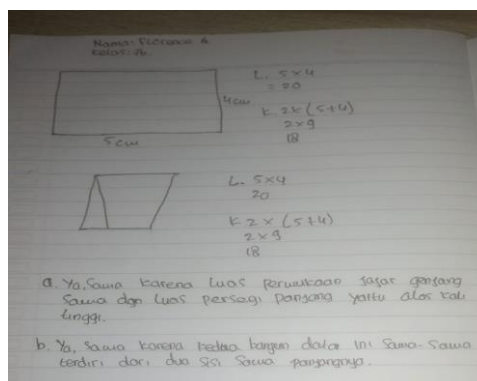 Nama: Florence
Kelas:
L. 5x4
= 20
4cm
K. 2x(5+4)
2x9
18
5cm
L. 5x4
20
K 2x(5+4)
2x9
18
a. Ya, Sama karena luas permukaan jajar genjang
Sama dgn luas persegi panjang yaitu alas kali
tinggi.
b. Ya, sama karena kedua bangun datar ini sama-sama
terdiri dari dua sisi sama panjangnya.